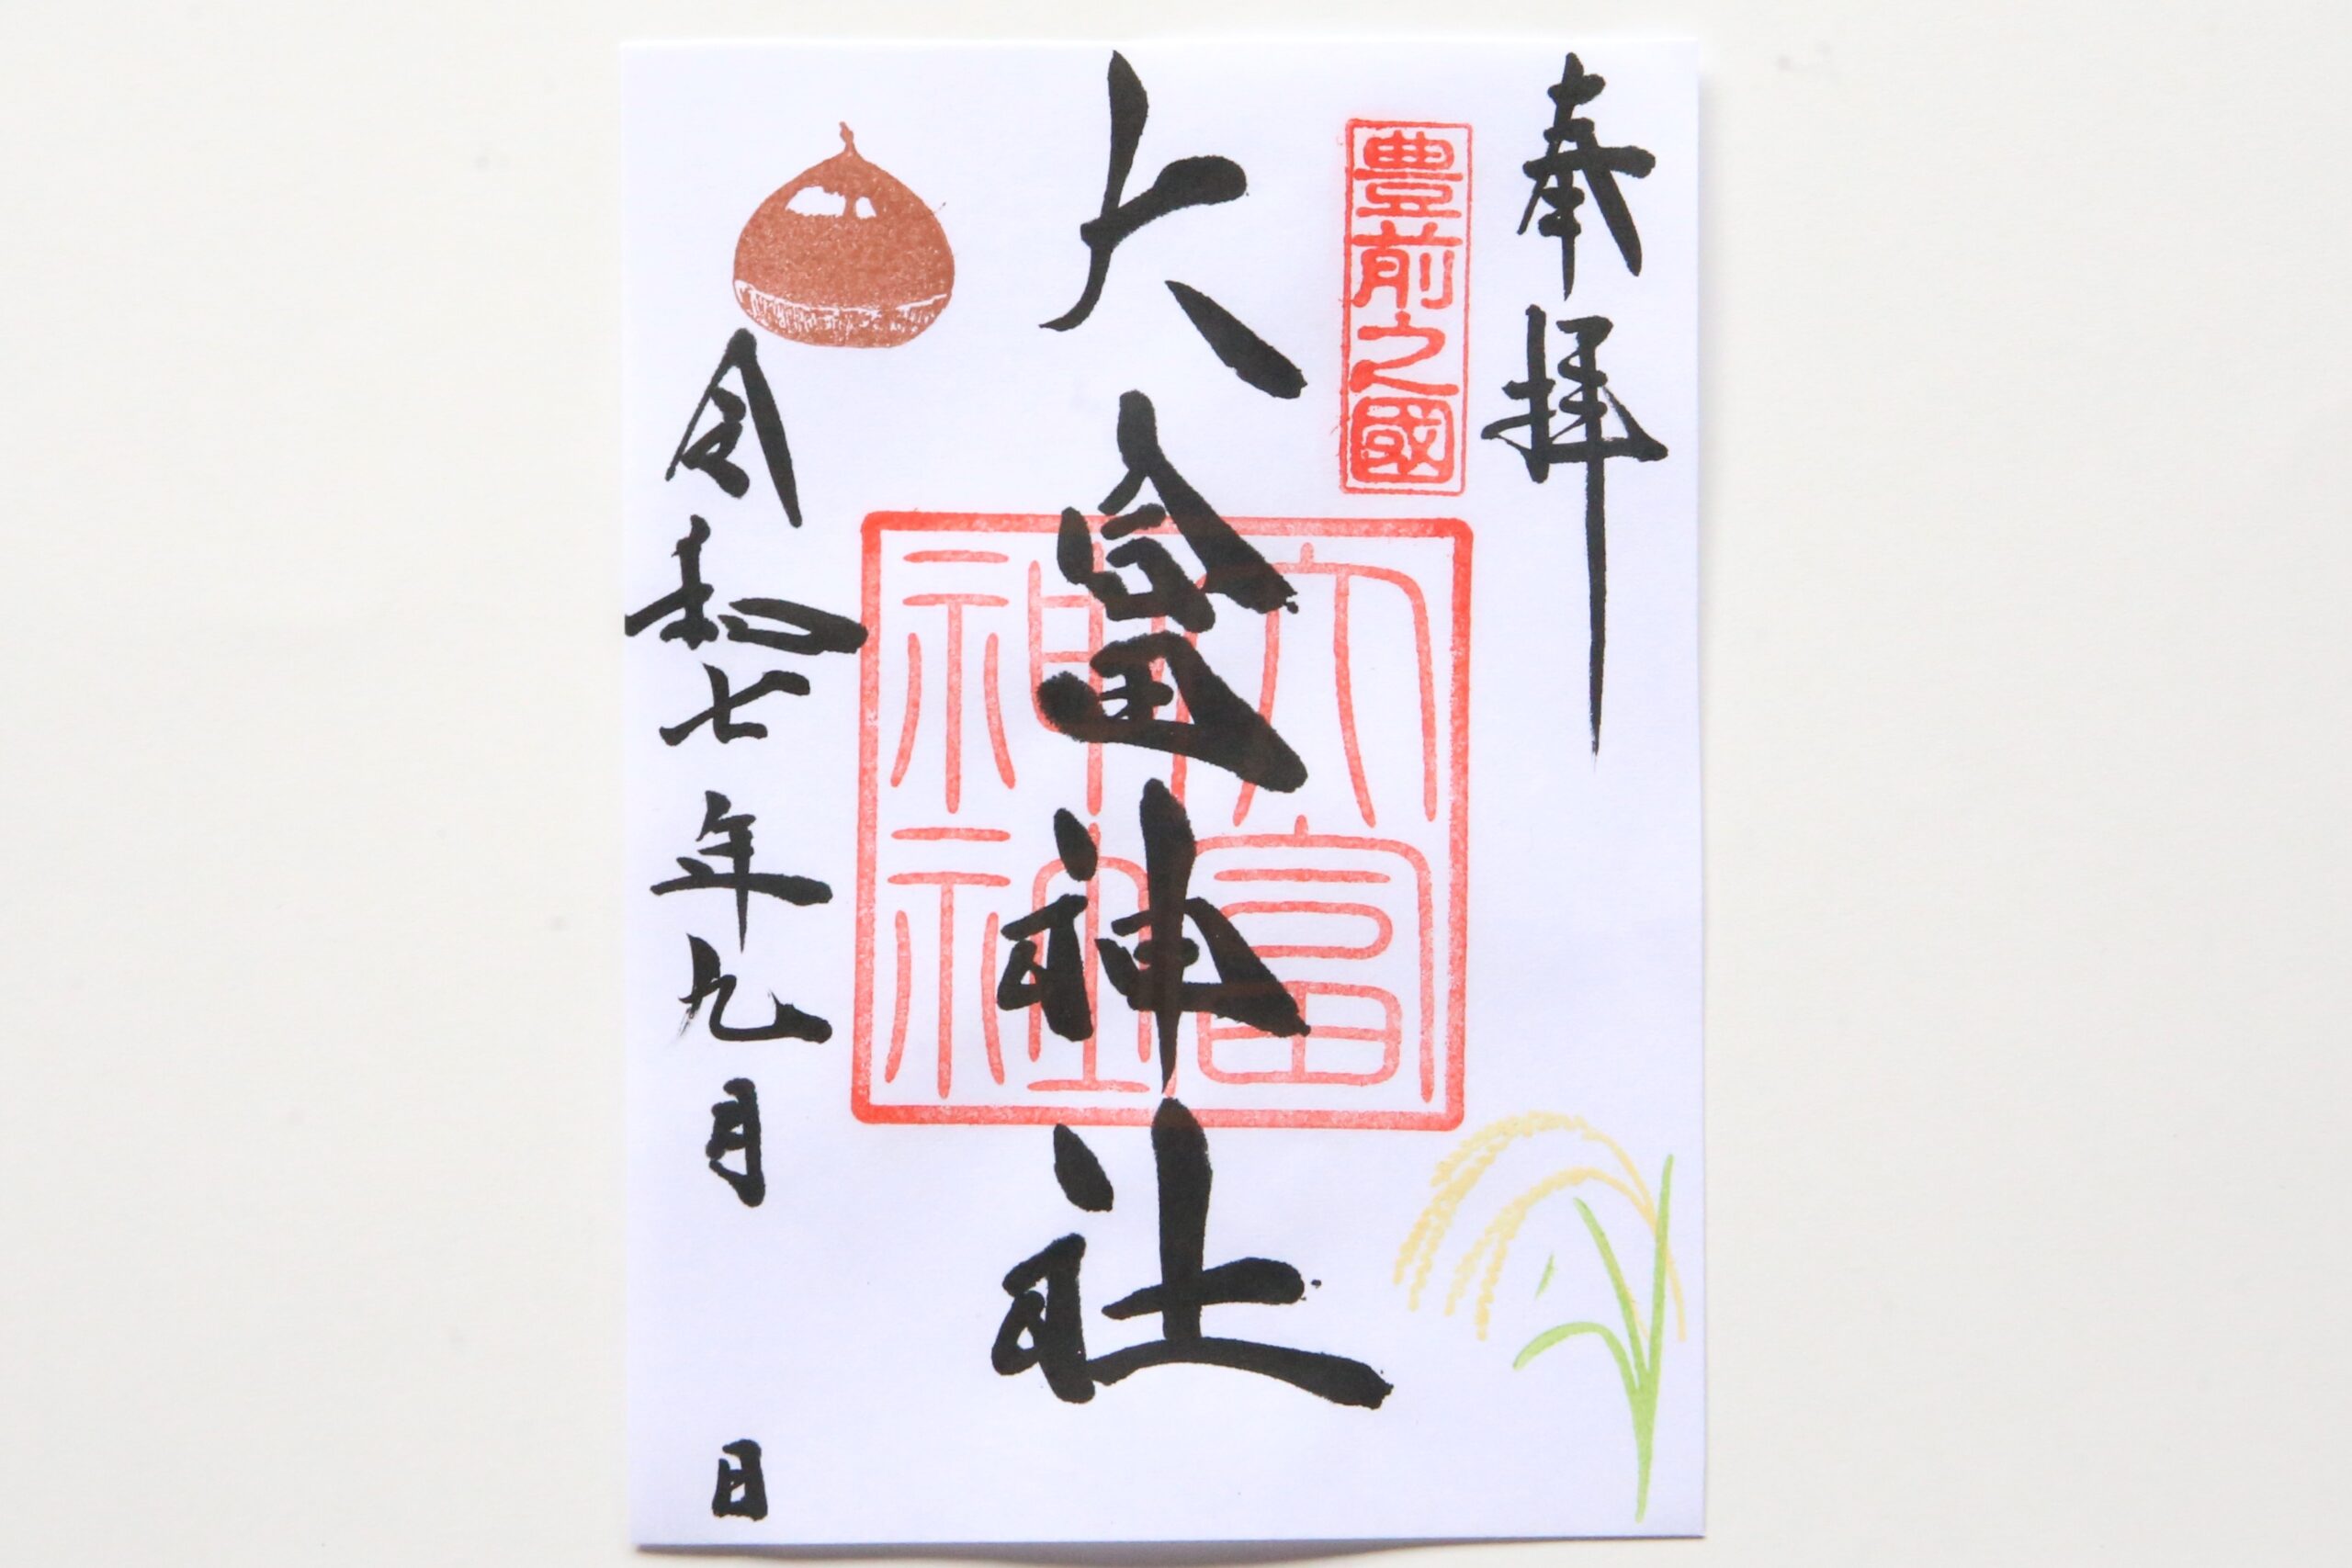 奉拝
豊前之國
大富神社
大富神社
令和七年九月 日